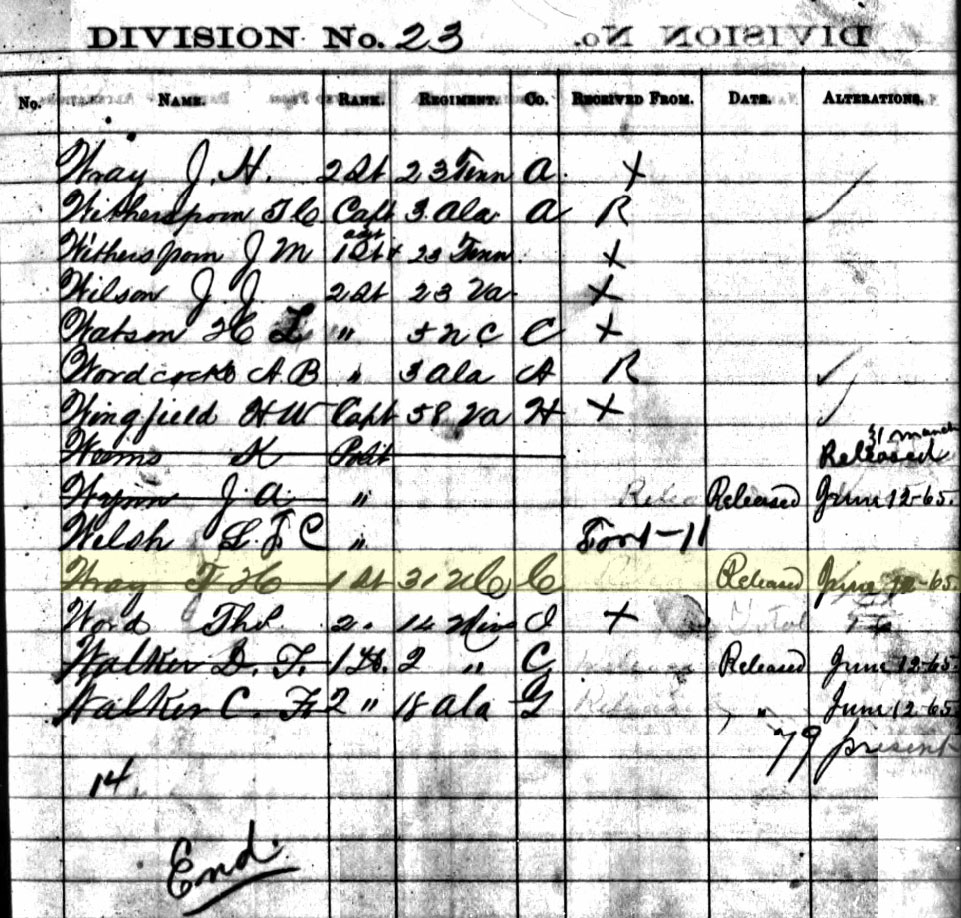 DIVISION No. 23
No. NAME. RANK. REGIMENT. Co. RECEIVED FROM. DATE. ALTERATIONS.
Wray J. H. 2 Lt 23 Tenn A. X
Witherspoon T C Capt 3. Ala A R ✓
Witherspoon J M 1 Lt 23 Tenn. X
Wilson J. J. 2 Lt 23 Va. X
Watson H L " 5 N C C X
Wordcock A. B " 3 Ala A R ✓
Wingfield H. W Capt 58 Va H X ✓
31 March
Weems K Polit Released
Wynn J. A. " Released June 12-65.
Welsh L. J C " Fort-11
Wray F H 1 Lt 31 N C C Released June 12-65.
Word Thos. 2. 14 Miss I X Total
Walker D. F. 1 Lt. 2 " C. Released June 12-65.
Walker C. F. 2 " 18 Ala G " June 12-65.
79 present
14.
End.